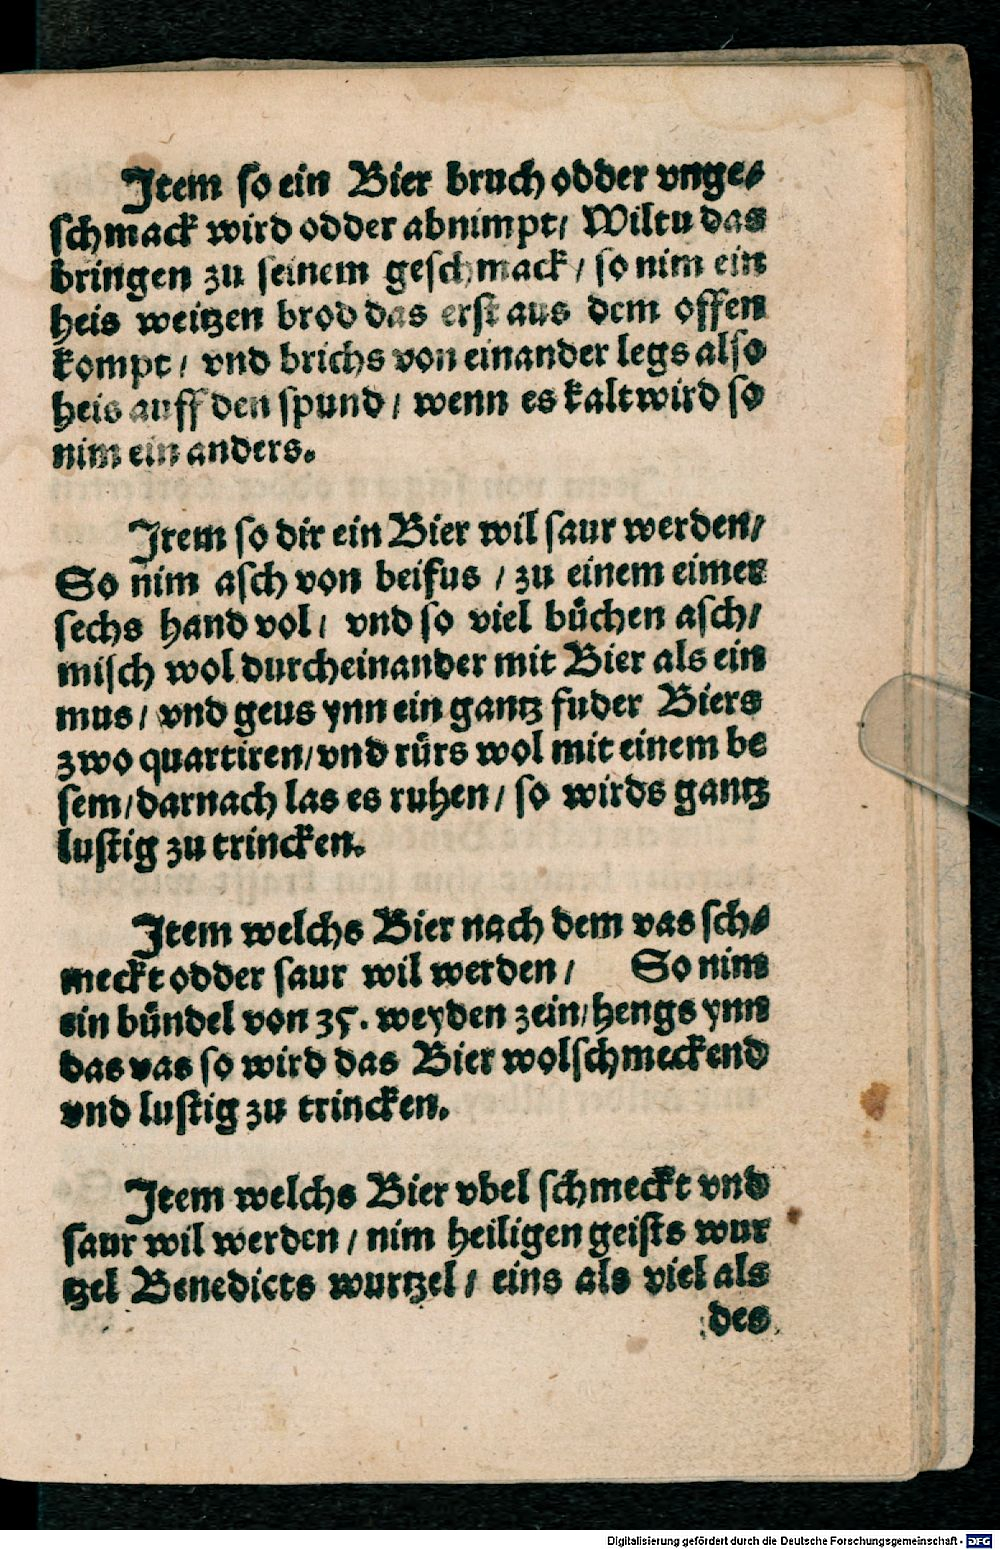 Item so ein Bier bruch odder vnge⸗
schmack wird odder abnimpt/ Wiltu das
bringen zu seinem geschmack/ so nim ein
heis weitzen brod das erst aus dem offen
kompt/ vnd brichs von einander legs also
heis auff den spund/ wenn es kalt wird so
nim ein anders.
Item so dir ein Bier wil saur werden/
So nim asch von beifus / zu einem eimer
sechs hand vol/ vnd so viel bůchen asch/
misch wol durcheinander mit Bier als ein
mus/ vnd geus ynn ein gantz fuder Biers
zwo quartiren/vnd růrs wol mit einem be
sem/darnach las es ruhen/ so wirds gantz
lustig zu trincken.
Item welchs Bier nach dem vas sch⸗
meckt odder saur wil werden/ So nim
ein bůndel von 35. weyden zein/hengs ynn
das vas so wird das Bier wolschmeckend
vnd lustig zu trincken.
Item welchs Bier vbel schmeckt vnd
saur wil werden/ nim heiligen geists wur
tzel Benedicts wurtzel/ eins als viel als
des
Digitalisierung gefördert durch die Deutsche Forschungsgemeinschaft - DFG